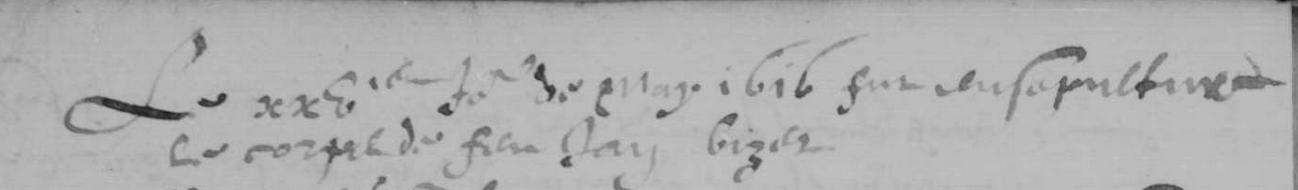 Le xxv^ien Jo^r de may 1616 fut ensepulture
le corps de feu Jan bizet